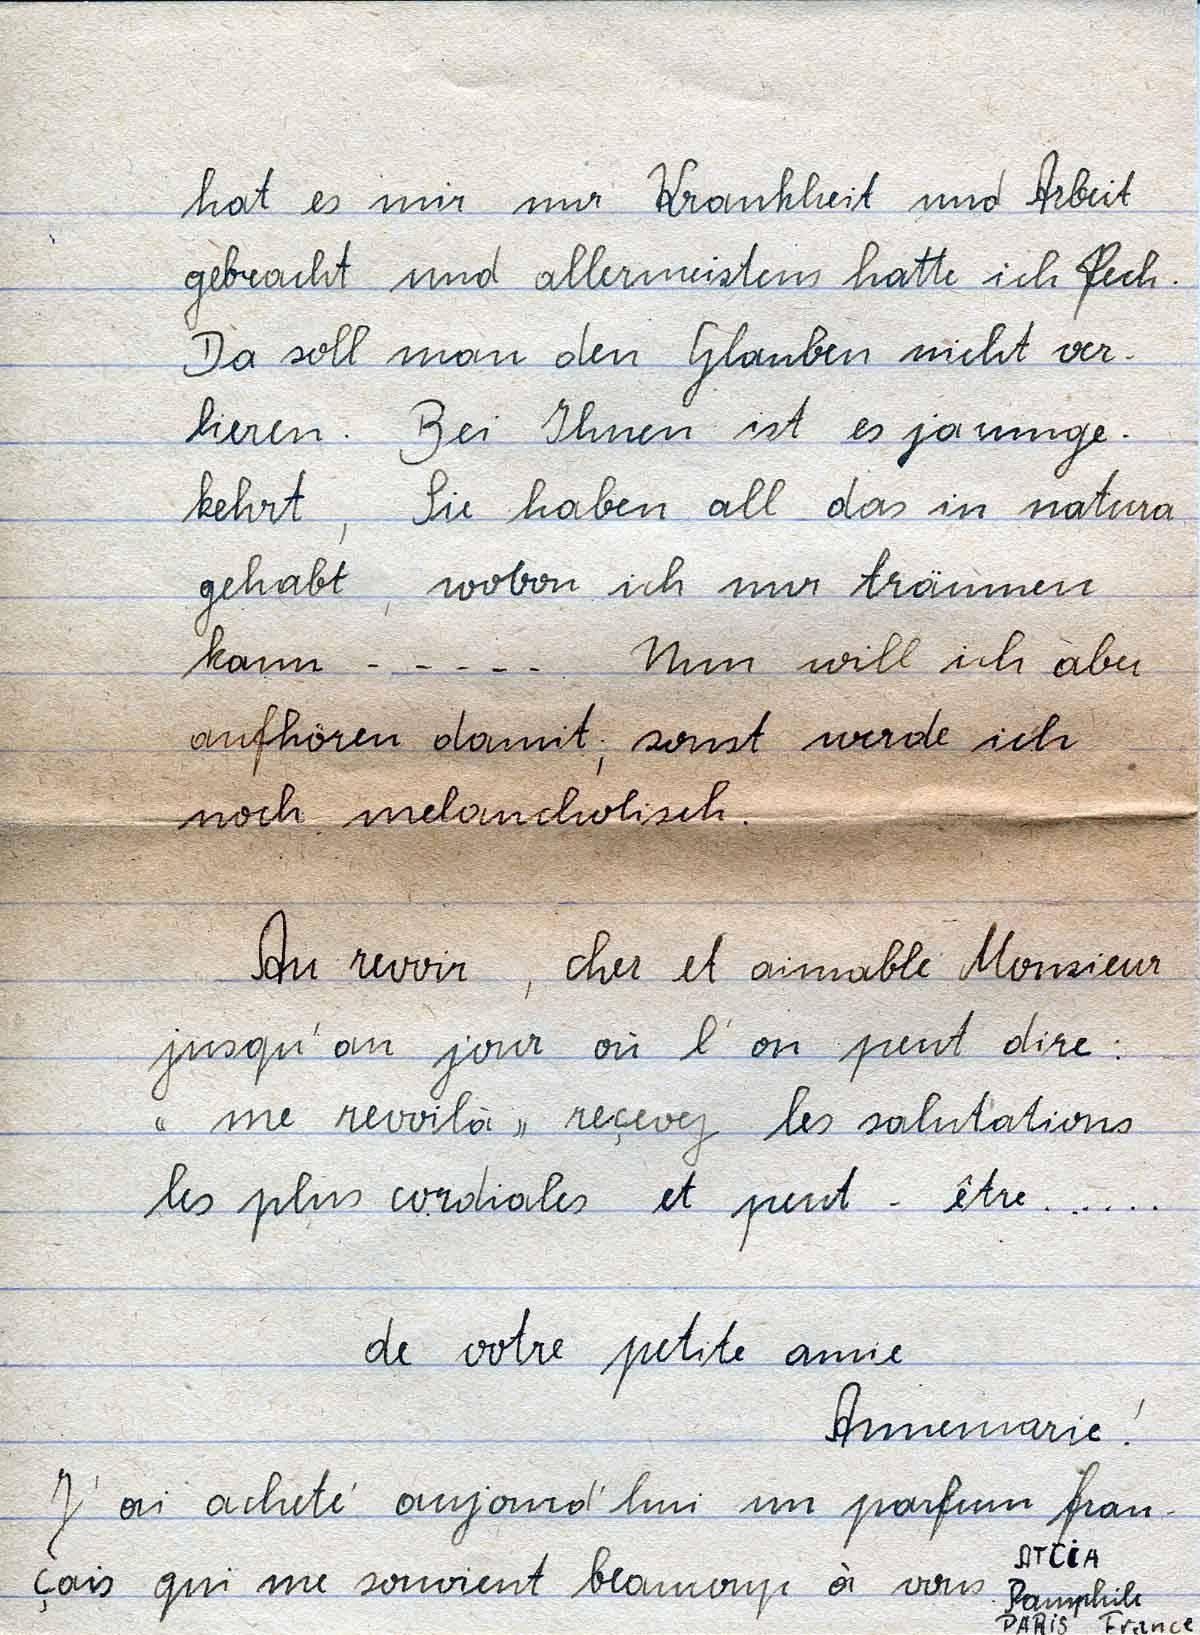 hat es mir nur Krankheit und Arbeit
gebracht und allermeistens hatte ich Pech.
Da soll man den Glauben nicht ver-
lieren. Bei Ihnen ist es ja umge-
kehrt, Sie haben all das in natura
gehabt, wovon ich nur träumen
kann ----- Nun will ich aber
aufhören damit, sonst werde ich
noch melancholisch.
Au revoir, cher et aimable Monsieur
jusqu'au jour où l'on peut dire:
"me revoilà" reçevez les salutations
les plus cordiales et peut-être.....
de votre petite amie
Annemarie!
J'ai acheté aujourd'hui un parfum fran-
çais qui me souvient beaucoup à vous
ATCIA
Pamphile
PARIS France